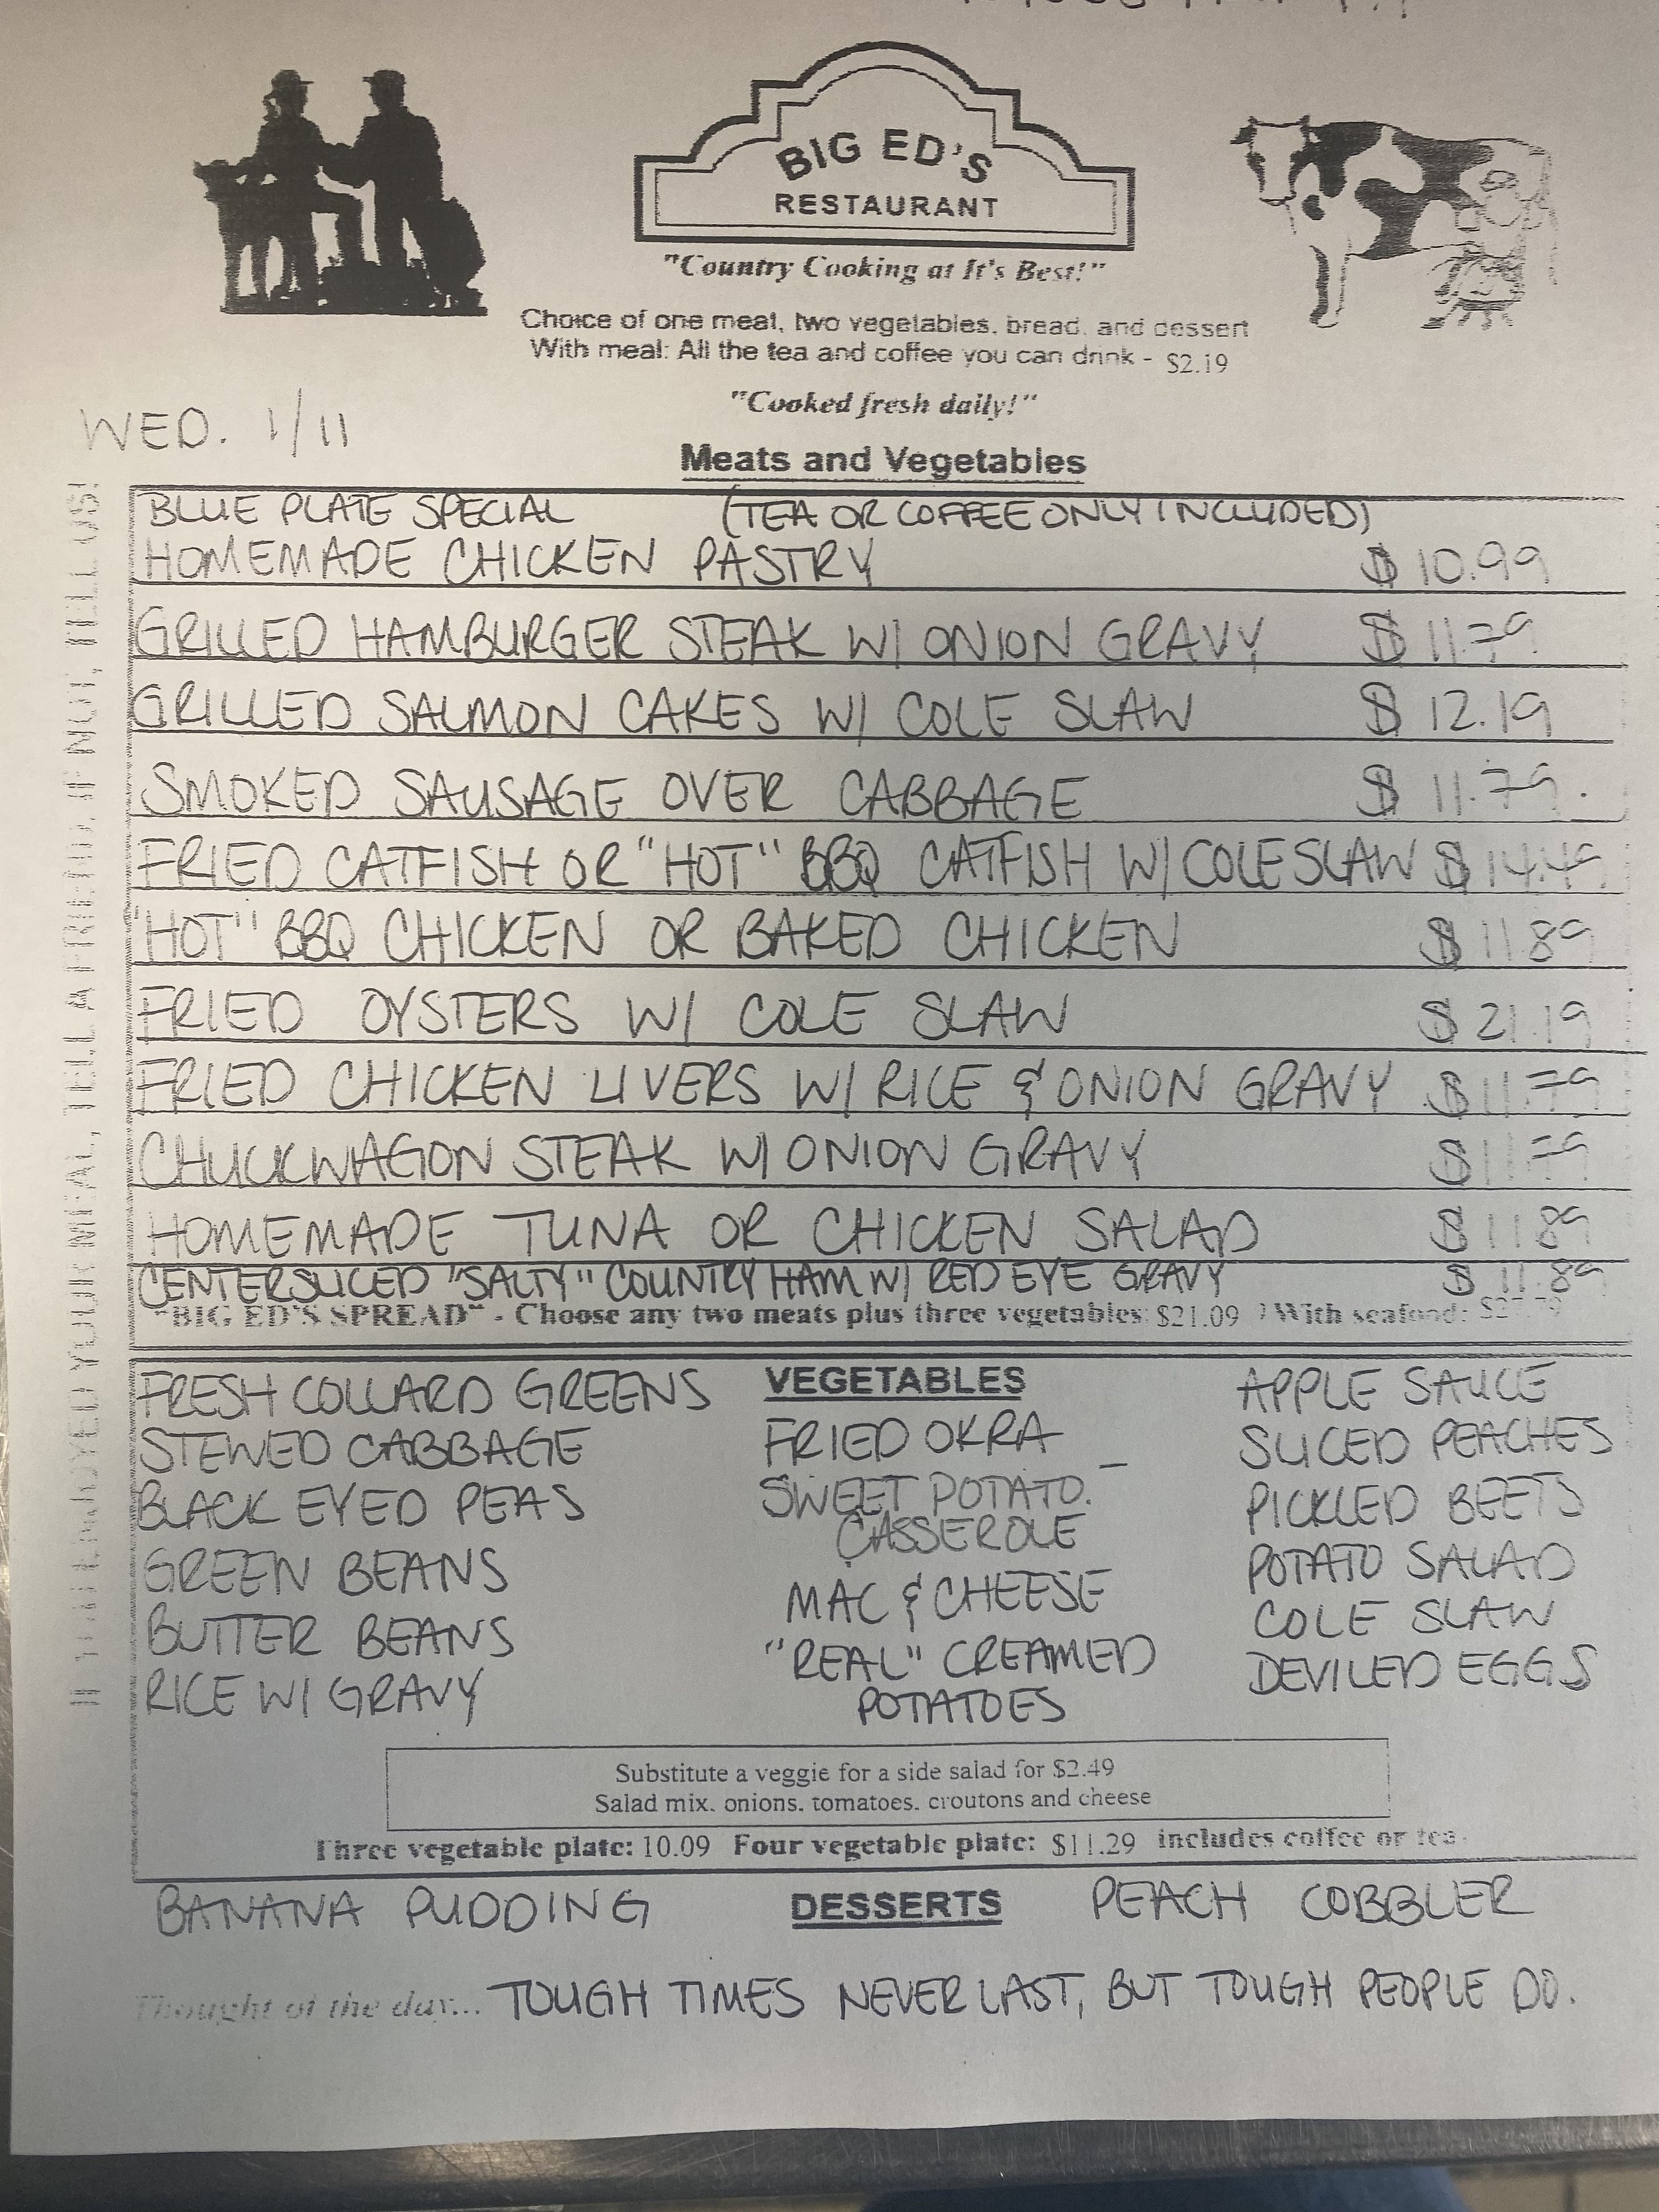 BIG ED'S
RESTAURANT
"Country Cooking at It's Best!"
Choice of one meat, two vegetables, bread, and dessert
With meal: All the tea and coffee you can drink - $2.19
"Cooked fresh daily!"
WED. 1/11
Meats and Vegetables
BLUE PLATE SPECIAL (TEA OR COFFEE ONLY INCLUDED)
HOMEMADE CHICKEN PASTRY $ 10.99
GRILLED HAMBURGER STEAK W/ ONION GRAVY $ 11.79
GRILLED SALMON CAKES W/ COLE SLAW $ 12.19
SMOKED SAUSAGE OVER CABBAGE $ 11.79
FRIED CATFISH OR "HOT" BBQ CATFISH W/ COLE SLAW $ 14.49
"HOT" BBQ CHICKEN OR BAKED CHICKEN $ 11.89
FRIED OYSTERS W/ COLE SLAW $ 21.19
FRIED CHICKEN LIVERS W/ RICE & ONION GRAVY $ 11.79
CHUCKWAGON STEAK W/ ONION GRAVY $ 11.79
HOMEMADE TUNA OR CHICKEN SALAD $ 11.89
CENTERSLICED "SALTY" COUNTRY HAM W/ RED EYE GRAVY $ 11.89
"BIG ED'S SPREAD" - Choose any two meats plus three vegetables: $21.09 With seafood:
IF YOU ENJOYED YOUR MEAL, TELL A FRIEND. IF NOT, TELL US!
VEGETABLES
FRESH COLLARD GREENS
STEWED CABBAGE
BLACK EYED PEAS
GREEN BEANS
BUTTER BEANS
RICE W/ GRAVY
FRIED OKRA
SWEET POTATO
CASSEROLE
MAC & CHEESE
"REAL" CREAMED
POTATOES
APPLE SAUCE
SLICED PEACHES
PICKLED BEETS
POTATO SALAD
COLE SLAW
DEVILED EGGS
Substitute a veggie for a side salad for $2.49
Salad mix, onions, tomatoes, croutons and cheese
Three vegetable plate: 10.09 Four vegetable plate: $11.29 includes coffee or tea
DESSERTS
BANANA PUDDING
PEACH COBBLER
Thought of the day... TOUGH TIMES NEVER LAST, BUT TOUGH PEOPLE DO.